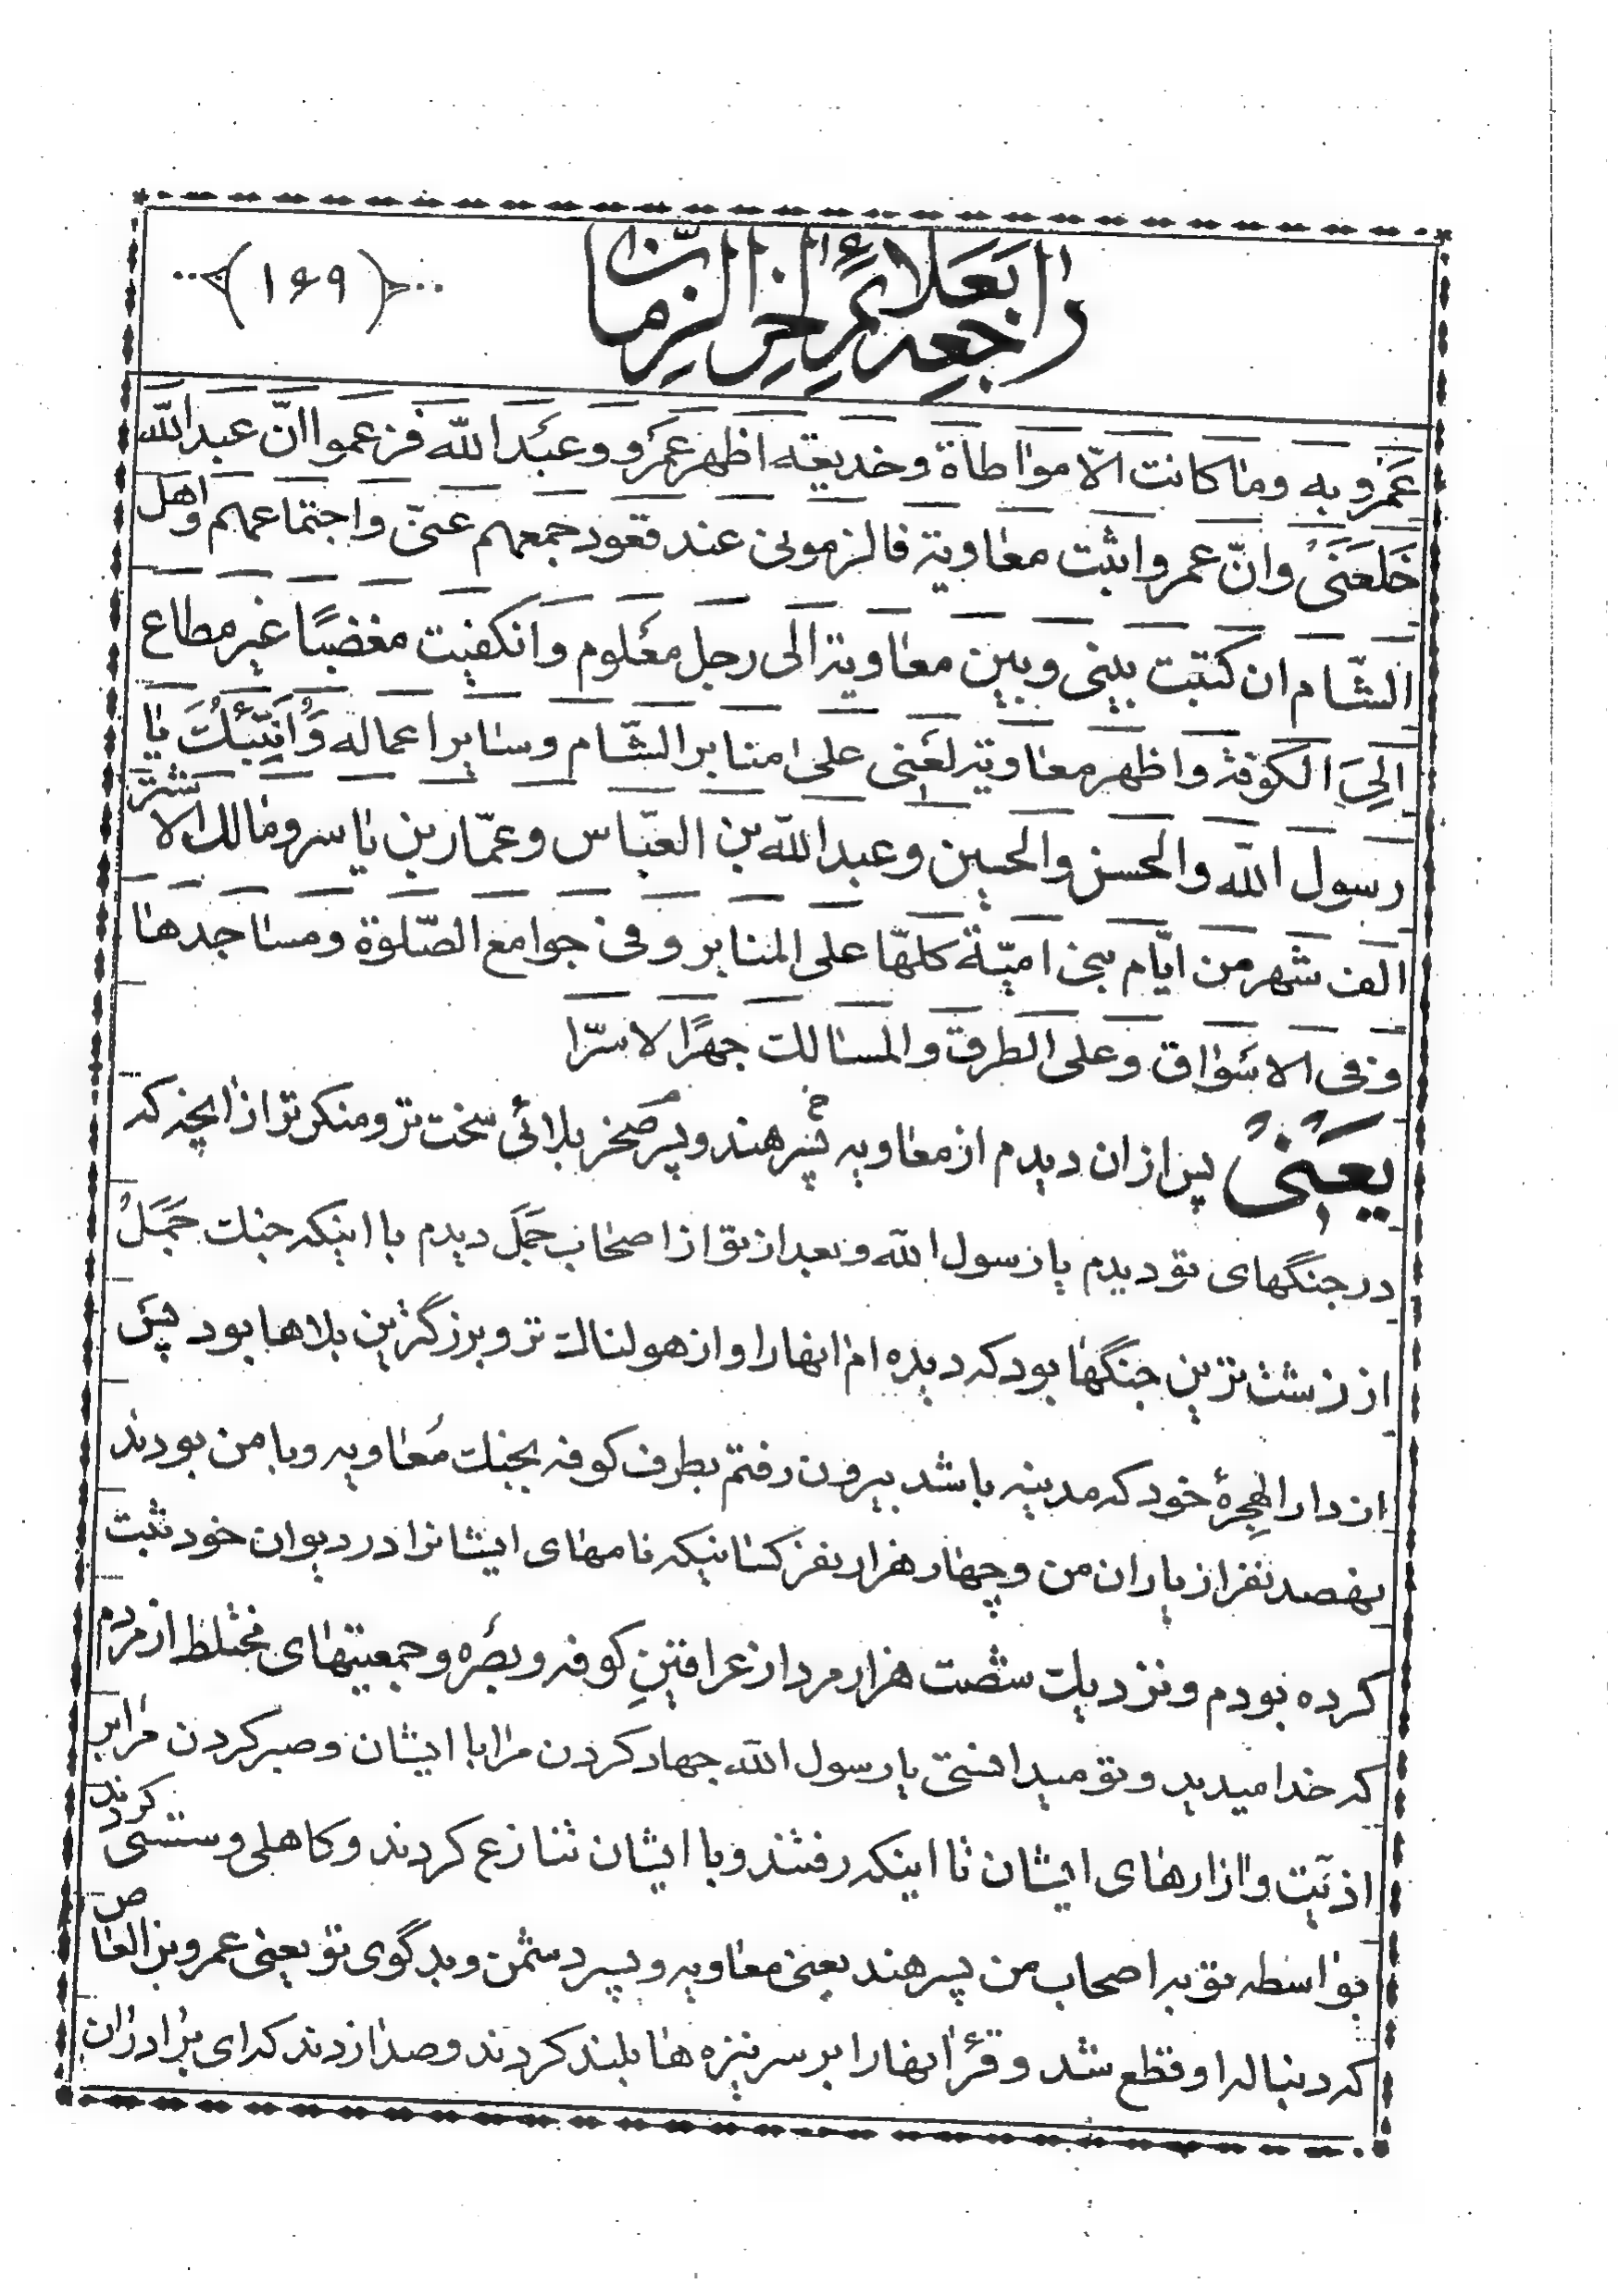 راجعه بعلائم آخر الزّمان
(۱۶۹)
عَمرو به وما كانت الّا مواطاة وخديعة اظهر عمرو وعبد الله فزعموا انّ عبد الله
خَلَعَنی وانّ عمروا ثبت معاوية فالزمونی عند قعود جمعهم عنّی واجتماعهم واهل
الشّام ان كتبت بينی وبين معاوية الی رجل معلوم وانكفيت مغضبًا غير مطاع
الی الكوفة واظهر معاوية لعنی علی منابر الشّام وساير اعماله وانبّئك يا
رسول الله والحسن والحسين وعبد الله بن العبّاس وعمّار بن ياسر ومالك الاشتر
الف شهر من ايّام بنی اميّة كلهّا علی المنابر وفی جوامع الصّلوة ومساجدها
وفی الاسواق وعلی الطرق والمسالك جهرًا لا سرّا
يعنی پس از ان ديدم از معاويه پسر هند و پسر صخر بلائی سخت تر و منكر تر از انچه كه
در جنگهای تو ديدم يا رسول الله و بعد از تو از اصحاب جمل ديدم با اينكه جنك جمل
از زشت ترين جنگها بود كه ديده ام انها را و از هولناك تر و بزرگترين بلاها بود پس
از دار الهجرهٔ خود كه مدينه باشد بيرون رفتم بطرف كوفه بجنك معاويه و با من بودند
نهصد نفر از ياران من و چهار هزار نفر كسانيكه نامهای ايشانرا در ديوان خود ثبت
كرده بودم و نزديك شصت هزار مرد از عراقين كوفه و بصره و جمعيتهای مختلط از مردم
كه خدا ميديد و تو ميدانستی يا رسول الله جهاد كردن مرا با ايشان و صبر كردن مرا بر
اذيّت و ازارهای ايشان تا اينكه رفتند و با ايشان تنازع كردند و كاهلی و سستی كردند
بواسطه توبه اصحاب من پسر هند يعنی معاويه و پسر دشمن و بدگوی تو يعنی عمرو بن العاص
كه دنباله او قطع شد و قرآنها را بر سر نيزه ها بلند كردند و صدا زدند كه ای برادران